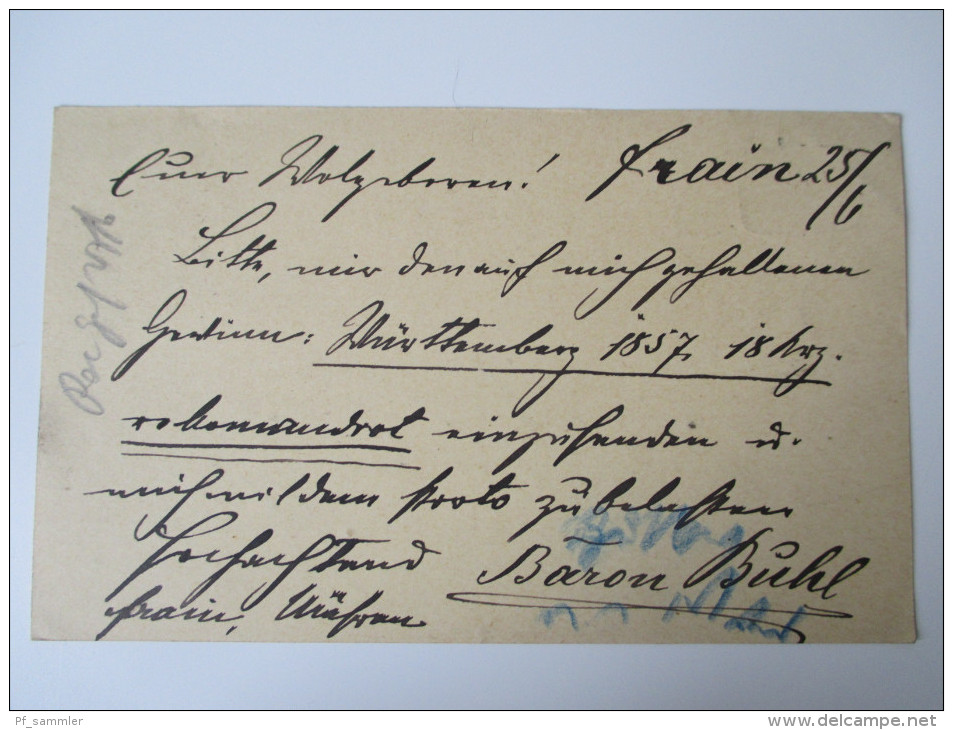 Euer Wolgeboren! Frain 25/6
Bitte, mir den auf mich gefallenen
Gewinn: Württemberg 1857, 18 Krz.
rekomandrot einzusenden u.
mich mit dem Porto zu belasten
Hochachtend
Baron Buhl
Frain, Mähren
Pf_sammler
www.delcampe.net